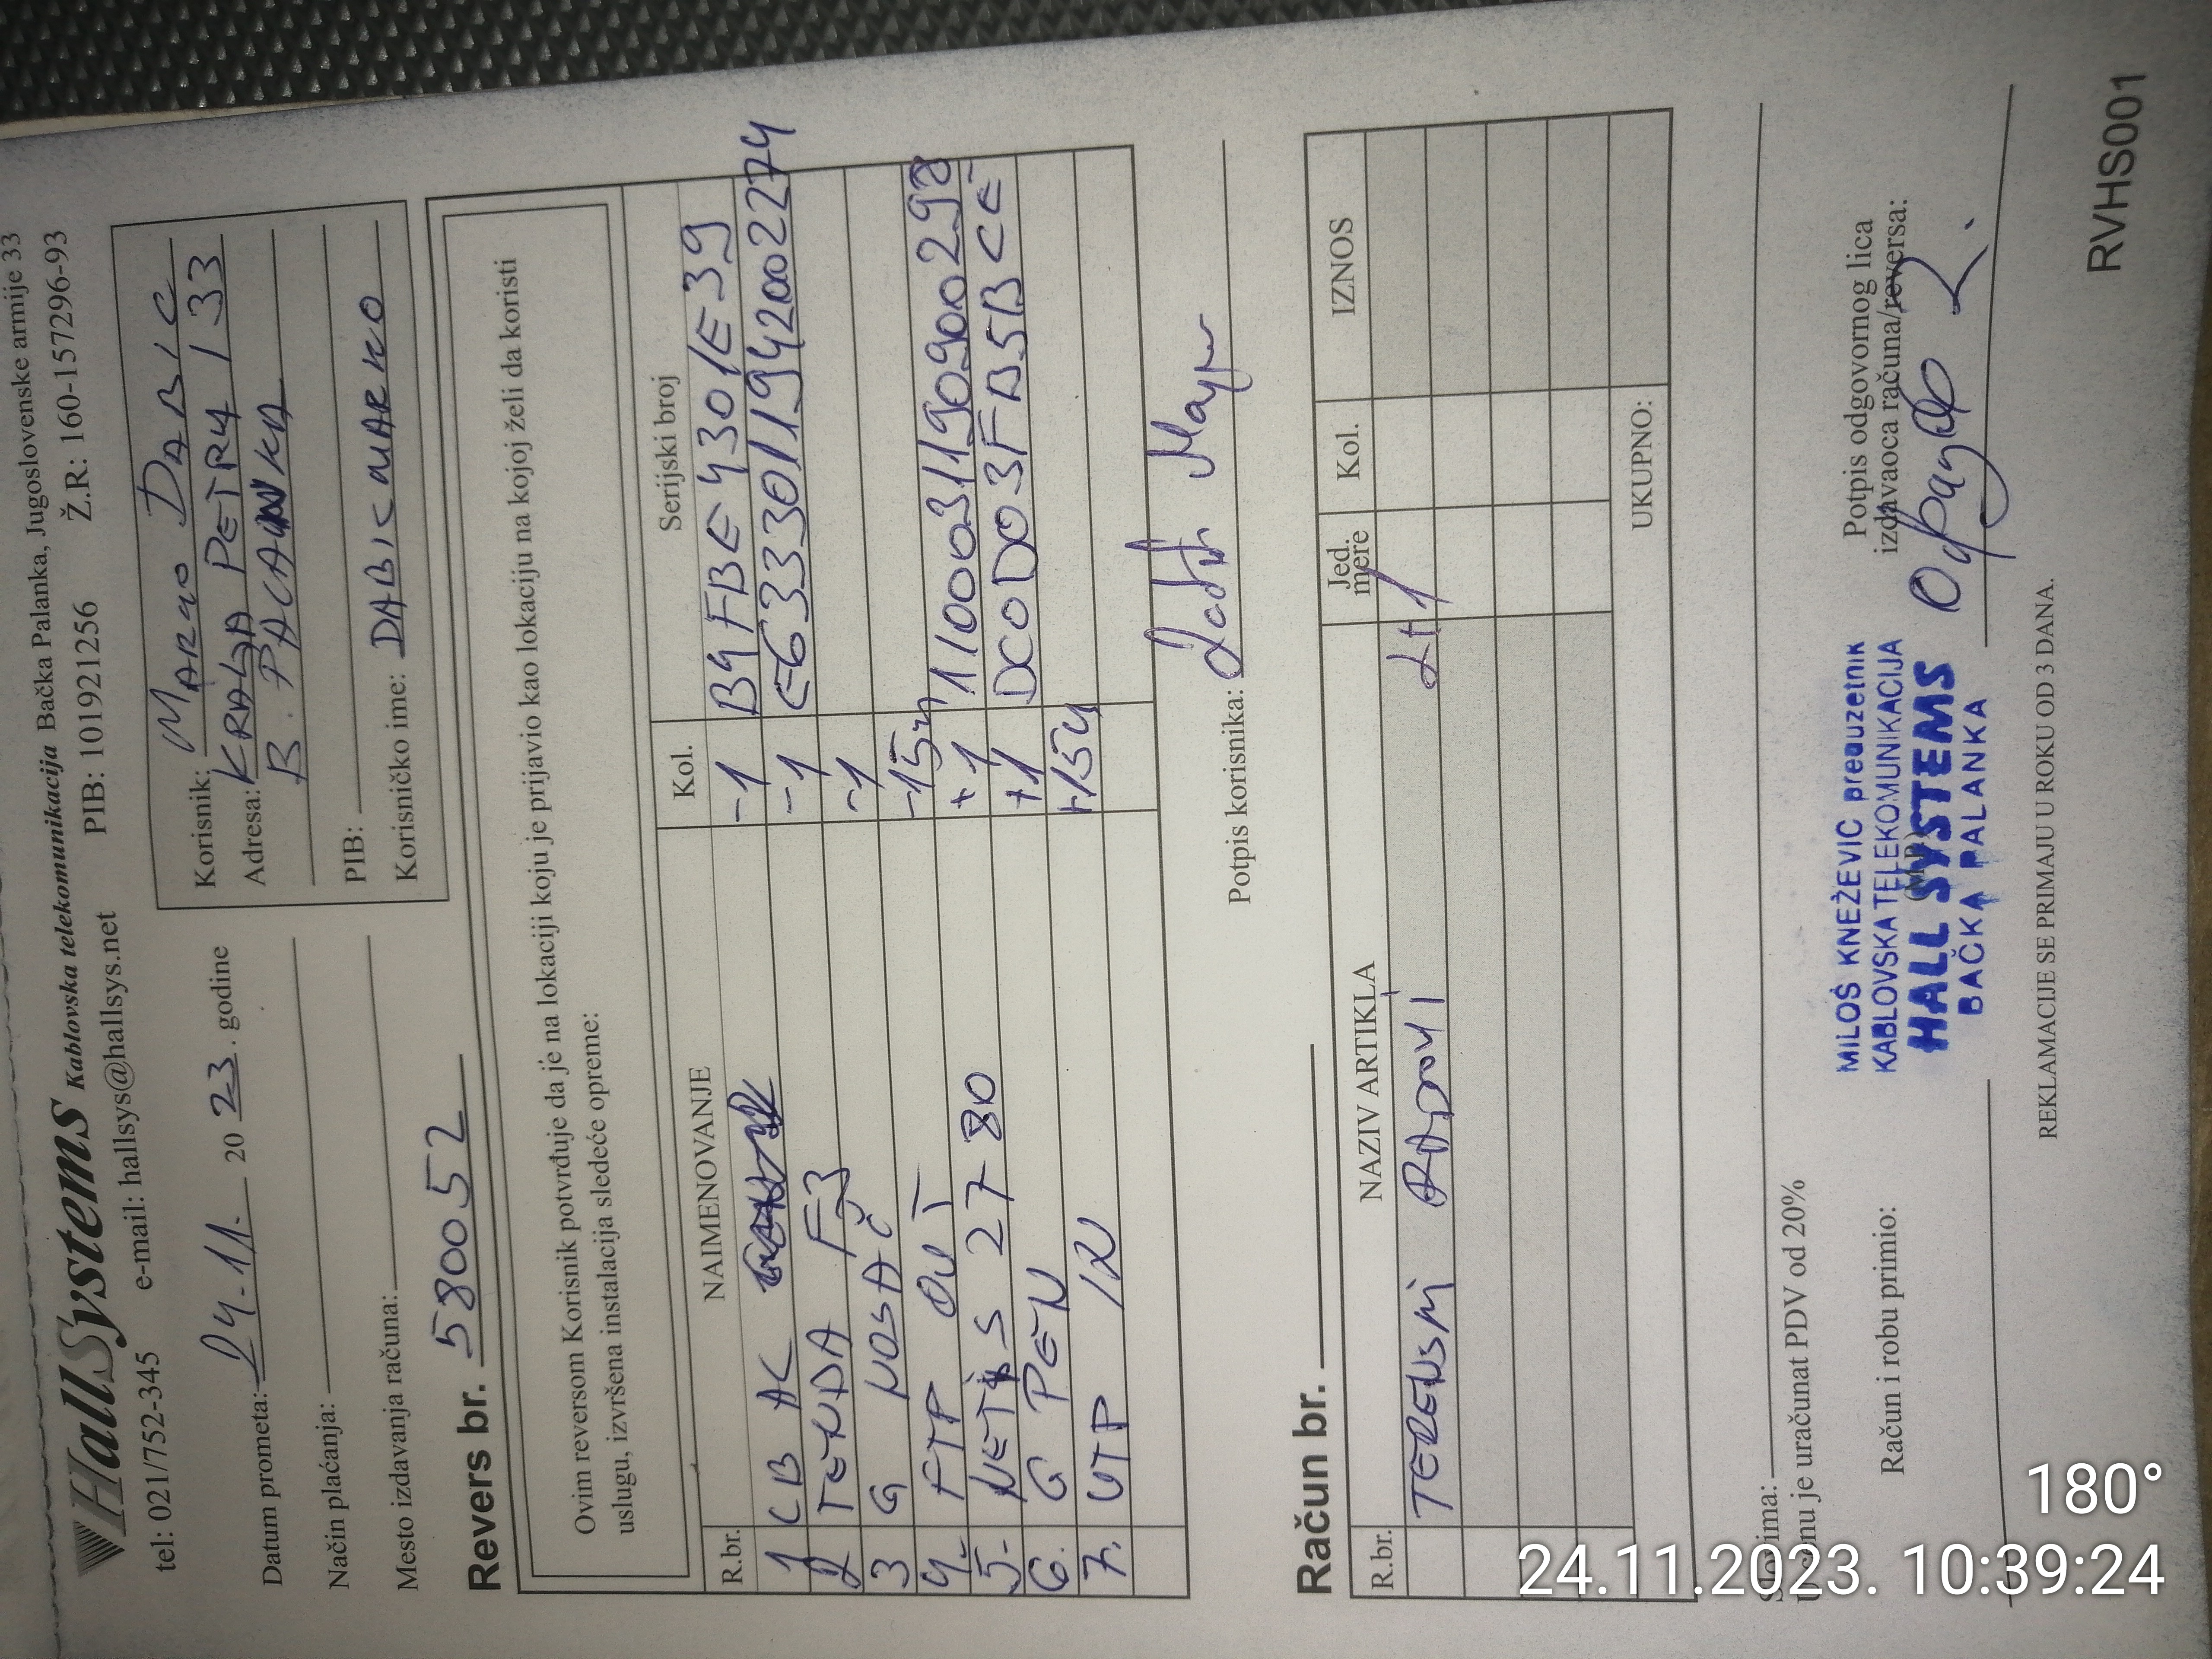 HallSystems Kablovska telekomunikacija Bačka Palanka, Jugoslovenske armije 33
tel: 021/752-345 e-mail: hallsys@hallsys.net PIB: 101921256 Ž.R: 160-157296-93
Datum prometa: 24.11. 2023. godine
Način plaćanja:
Mesto izdavanja računa:
Korisnik: MARKO DABIC
Adresa: KRALJA PETRA 133
B. PALANKA
PIB:
Korisničko ime: DABICMARKO
Revers br. 580052
Ovim reversom Korisnik potvrđuje da je na lokaciji koju je prijavio kao lokaciju na kojoj želi da koristi
uslugu, izvršena instalacija sledeće opreme:
R.br. NAIMENOVANJE Kol. Serijski broj
1 LB AC -1 B4FBE4301E39
2 TENDA F3 -1 E6333011942002274
3 G NOSAČ -1
4- FTP OUT -15m
5- NETIS 2780 +1 1100031190900298
6. G PEN +1 DC0D03FB5BCE
7. UTP IN +15m
Potpis korisnika:
Račun br.
R.br. NAZIV ARTIKLA Jed. mere Kol. IZNOS
TERENSKI RADOVI
UKUPNO:
Slovima:
U cenu je uračunat PDV od 20%
Račun i robu primio:
MILOŠ KNEŽEVIĆ preduzetnik
KABLOVSKA TELEKOMUNIKACIJA
HALL SYSTEMS
BAČKA PALANKA
(M.P.)
Potpis odgovornog lica
izdavaoca računa/reversa:
REKLAMACIJE SE PRIMAJU U ROKU OD 3 DANA.
RVHS001
180°
24.11.2023. 10:39:24